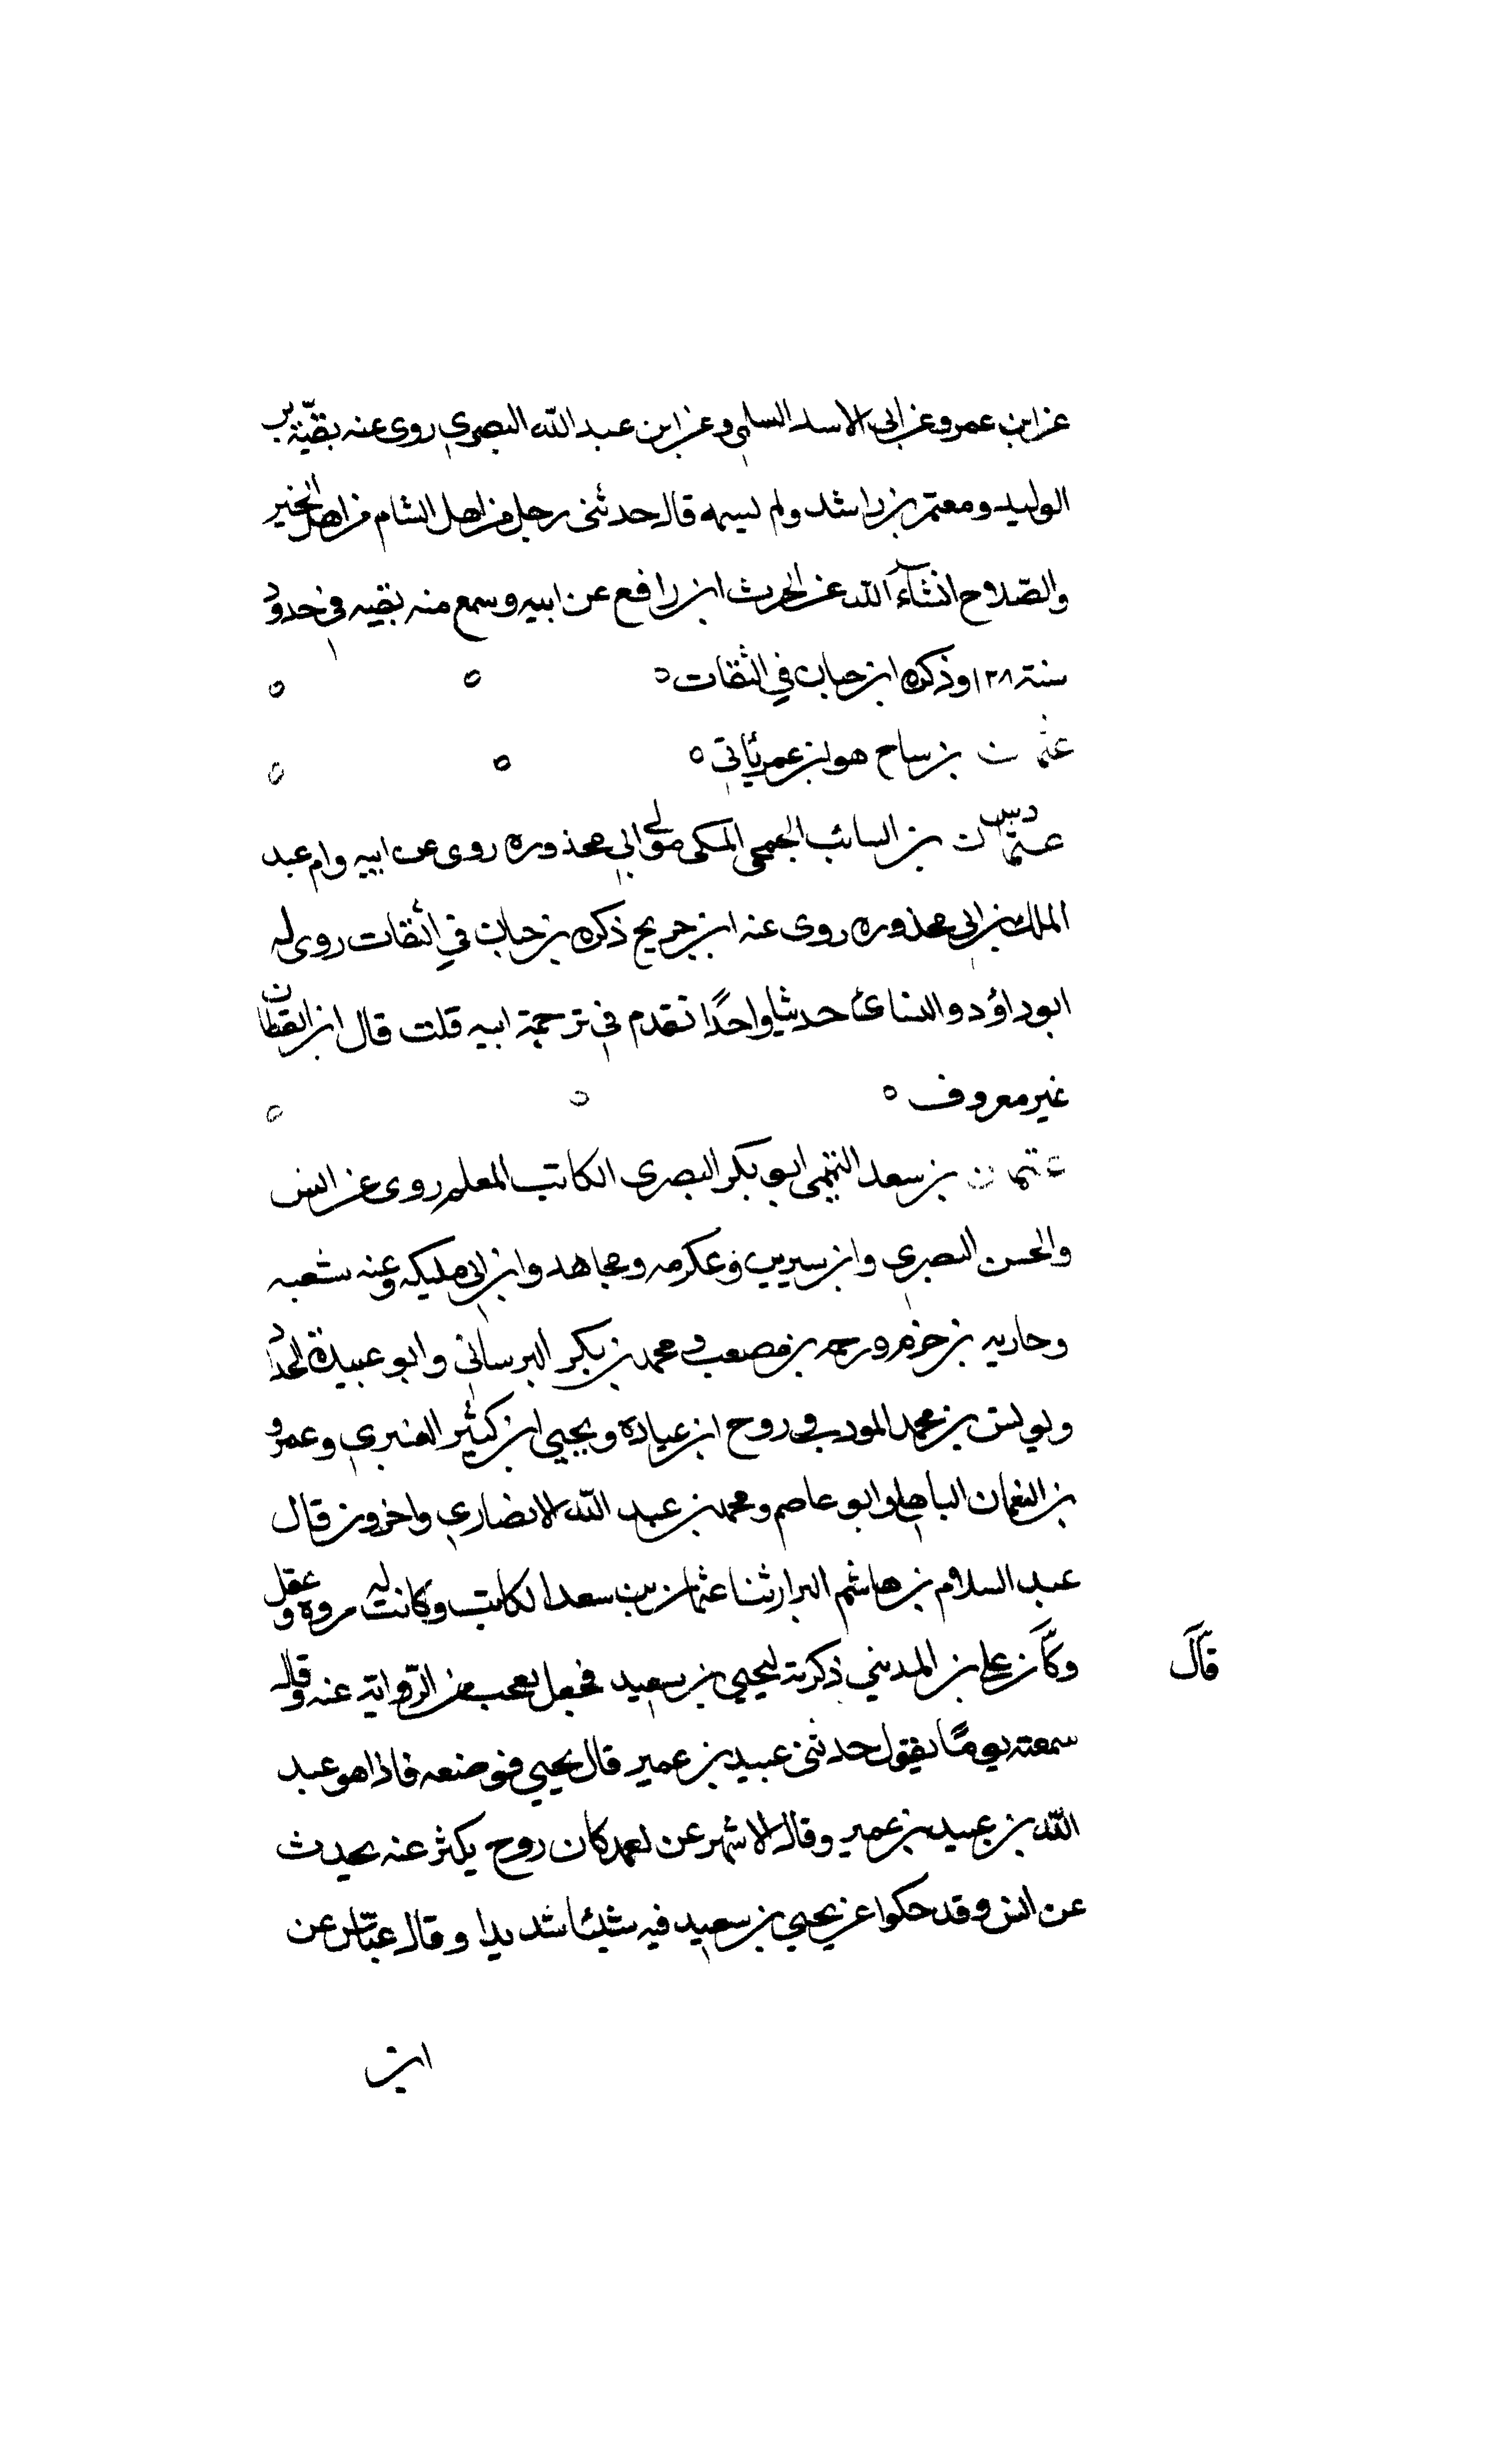 عن ابن عمر وعن ابي الاسد السلمي وعن ابن عبد الله البصري روى عنه بقيّة بن
الوليد ومعتمر بن راشد ولم يسمه قال حدثني رجل من اهل الشام من اهل الخير
والصّلاح انشآء الله عن الحرث ابن رافع عن ابيه وسمع منه بقيه في حدود
سنة ١٢٨ وذكره ابن حبان في الثقات
عثمان بن ساج هو ابن عمر ياتي
دس
عثمان بن السائب الجمحي المكي مولى ابي محذوره روى عن ابيه وام عبد
الملك بن ابي محذوره روى عنه ابن جريج ذكره بن حبان في الثقات روى له
ابو داؤد والنسائي حديثا واحدًا تقدم في ترجمة ابيه قلت قال ابن القطان
غير معروف
عثمان بن سعد التيمي ابو بكر البصري الكاتب المعلم روى عن انس
والحسن البصري وابن سيرين وعكرمه ومجاهد وابن ابي مليكه وعنه شعبه
وحاربه بن خرم ورحمه بن مصعب ومحمد بن بكر البرساني وابو عبيدة الحداد
ويونس بن محمد المودب وروح ابن عباده ويحيى ابن كثير العنبري وعمرو
بن النعمان الباهلي وابو عاصم ومحمد بن عبد الله الانصاري واخرون قال
عبد السلام بن هاشم البزار ثنا عثمان بن سعد الكاتب وكانت له مروه وعقل
وكَّان علي بن المديني ذكرته ليحيى بن سعيد فجعل يعجب من الرّواية عنه وقال
قآل
سمعته يومًا يقول حدثني عبيد بن عمير قال يحيى فوضعه فاذا هو عبد
الله بن عبيد بن عمير وقال الاشهر عن كان روح يكثر عنه بحديث
عن انس وقد حكوا عن يحيى بن سعيد فيه شيئا شديدا وقال عبّاس عن
ابن